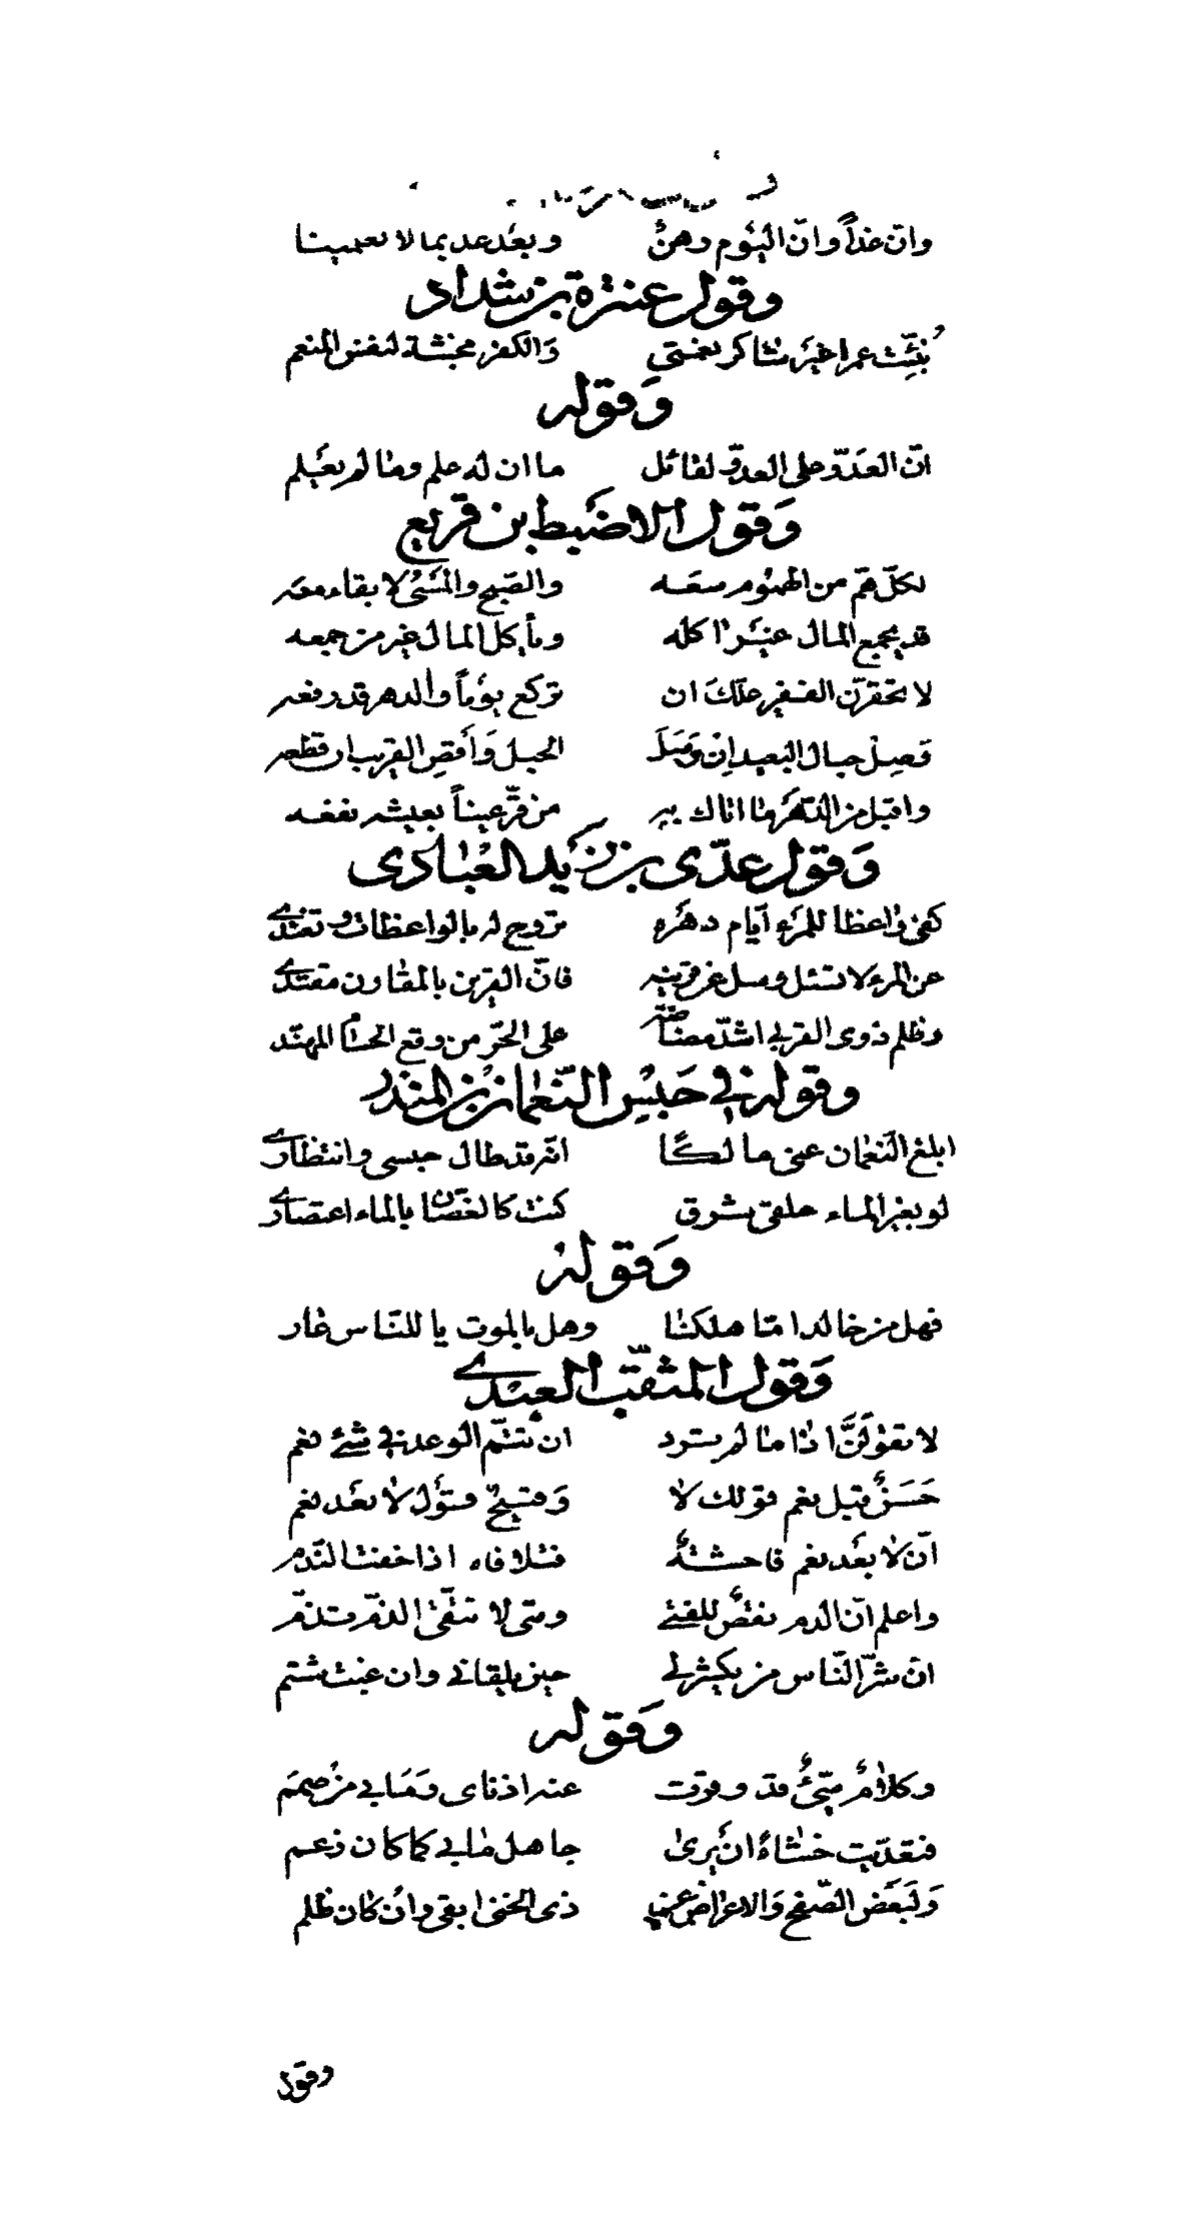 وانّ غداً وانّ اليَوم رهنٌ وبعد غد بما لا تعلمينا
وقول عنترة بن شداد
نُبّئت عمرا غير شاكر نعمتى وَالكفر مخبثة لنفس المنعم
وَقوله
انّ العَدوّ على العدوّ لقائل ما ان له علم وما لم يعلم
وَقول الاضبط بن قريع
لكلّ همّ من الهموم سعه والصّبح والمَسىُ لا بقاء معه
قد يجمع المال غيرُ اكله ويأكل المال غير من جمعه
لا تحقرنّ الفقير علّك ان تركع يوماً والدهر قد رفعه
فَصِل حبال البعيد اِن وَصَلَ الحبل وَأقصِ القريب ان قطعه
واقبل من الدّهر ما اتاك به من قرّ عيناً بعيشه نفعه
وَقول عدّى بن زيد العبادى
كفى واعظا للمرَءِ ايّام دهره تروح له بالواعظات وتغتدي
عن المرء لا تسئل وسل عن قرينه فانّ القرين بالمقارن مقتدي
وظلم ذوى القربى اشدّ مضاضة على الحرّ من وقع الحسام المهنّد
وقوله فى حَبسِ النّعمان بن المنذر
ابلغ النّعمان عنى مالكًا انّه قد طال حبسى وانتظاري
لو بغير الماء حلقى شرق كنت كالغصّان بالماء اعتصاري
وَقوله
فهل من خالد امّا هلكنا وهل بالموت يا للنّاس عار
وَقول المثقّب العبدي
لا تقولَنَّ اذا ما لم ترد ان تتمّ الوعد فى شئ نعم
حَسَنٌ قبل نعم قولك لا وَقبيحٌ قولُ لا بعَد نعم
انّ لا بعَد نعم فاحشةٌ فبلا فابدء اذا خفت النّدم
واعلم انّ الذم نقصٌ للفتى ومتى لا تتّقى الذمّ تذمّ
انّ شرّ النّاس من يكشر لى حين يلقانى وان غبت شتم
وَقوله
وكلامٌ سيّئٌ قد وقرت عنه اذناى وَمَابى من صمم
فتعدّيت خشاة ان يرى جاهل مابى كما كان زعم
وَلَبَعض الصّفح وَالاعراض عن ذى الخنى ابقى وان كان ظلم
وقول